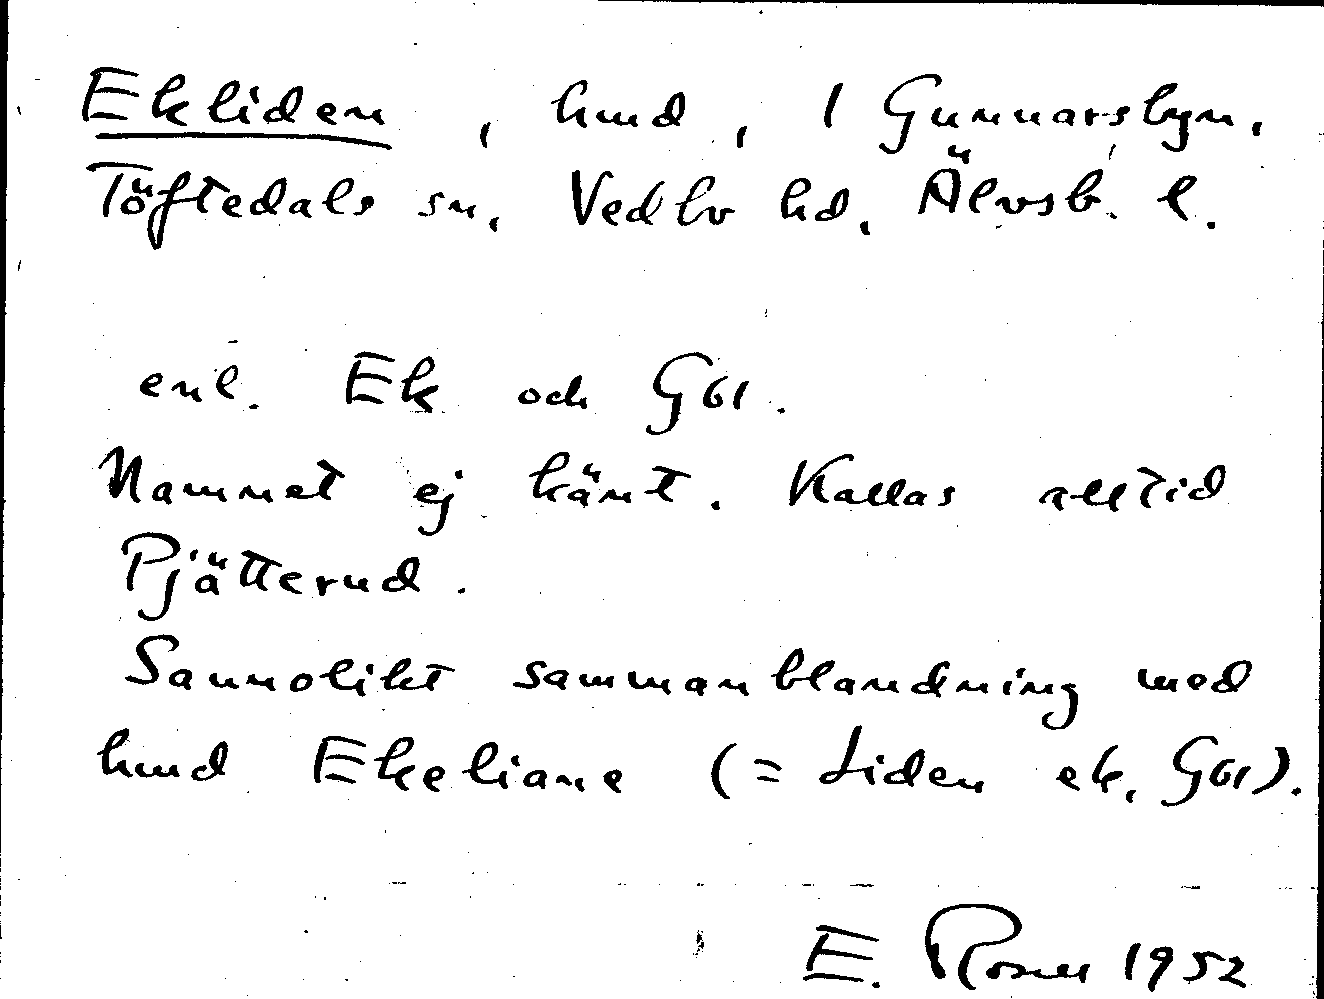 Ekliden, hmd, 1 Gunnarsbyn,
Töftedals sn, Vedbo hd, Älvsb. l.
enl. Ek och Gbl.
Namnet ej känt. Kallas alltid
Pjätterud.
Sannolikt sammanblandning med
hmd Ekeliane (= Liden ek, Gbl).
E. Rosell 1952